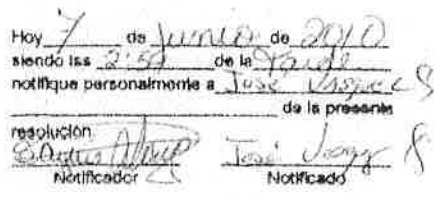 Hoy 7 de Junio de 2010
siendo las 2:50 de la Tarde
notifique personalmente a José Vasquez
de la presente
resolución
José
Notificador Notificado